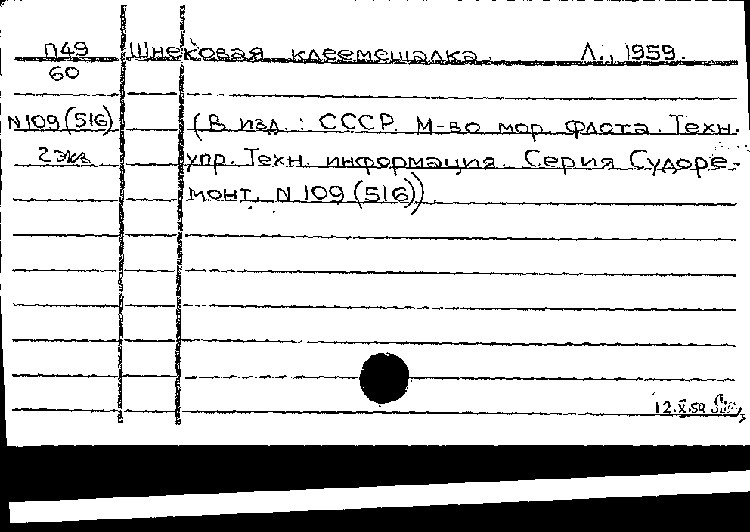 П49 Шнековая клеемешалка. Л., 1959.
60
N109(516) (В изд.: СССР. М-во мор. флота. Техн.
2 экз. упр. Техн. информация. Серия Судоре-
монт, N 109 (516))
12.X.59